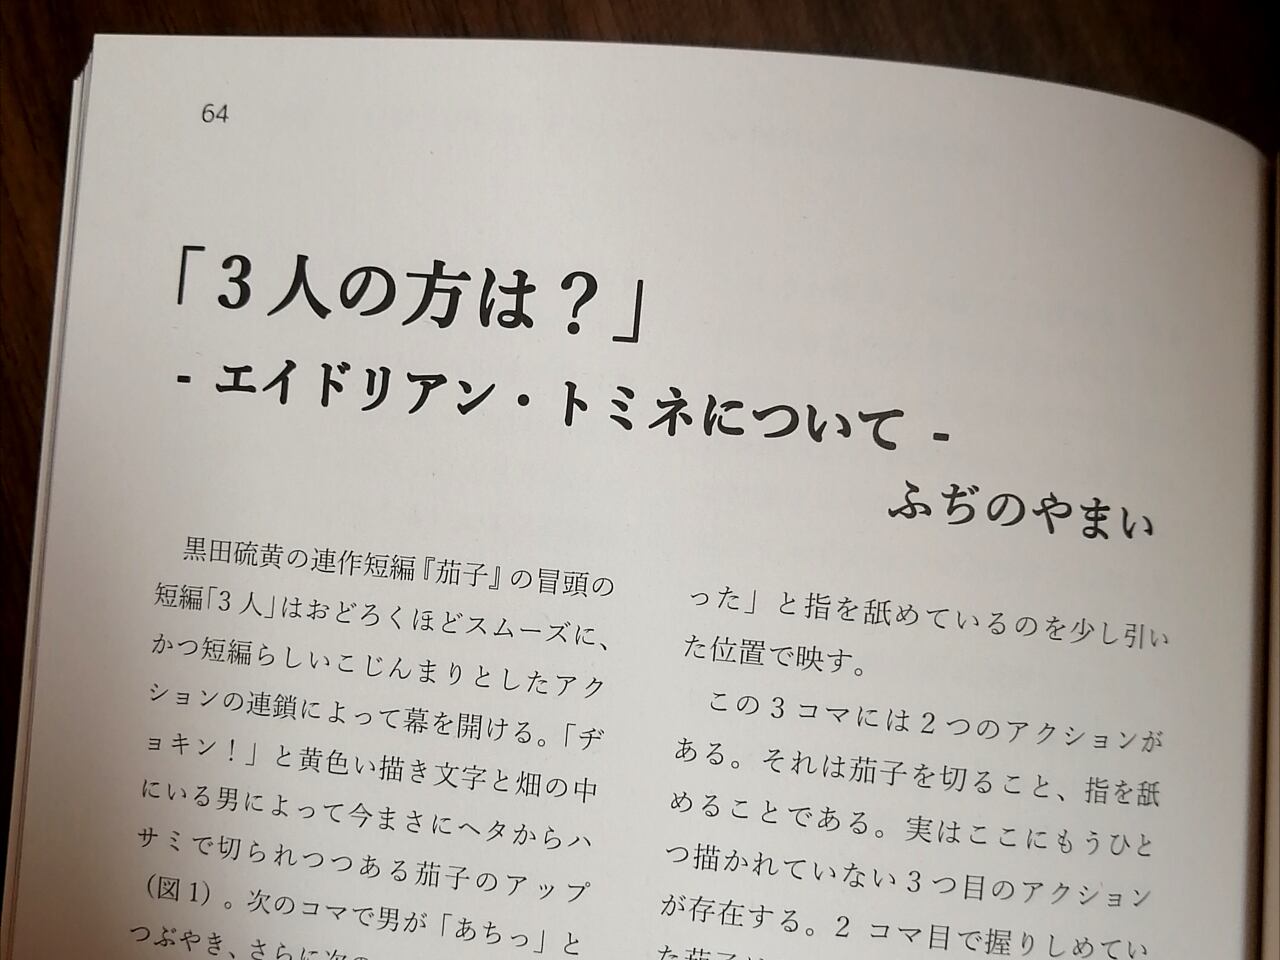 64
「3人の方は？」
- エイドリアン・トミネについて -
ふぢのやまい
黒田硫黄の連作短編『茄子』の冒頭の
短編「3人」はおどろくほどスムーズに、
かつ短編らしいこじんまりとしたアク
ションの連鎖によって幕を開ける。「ヂ
ョキン！」と黄色い描き文字と畑の中
にいる男によって今まさにヘタからハ
サミで切られつつある茄子のアップ
（図1）。次のコマで男が「あちっ」と
つぶやき、さらに次の
った」と指を舐めているのを少し引い
た位置で映す。
この3コマには2つのアクションが
ある。それは茄子を切ること、指を舐
めることである。実はここにもうひと
つ描かれていない3つ目のアクション
が存在する。2コマ目で握りしめてい
た茄子